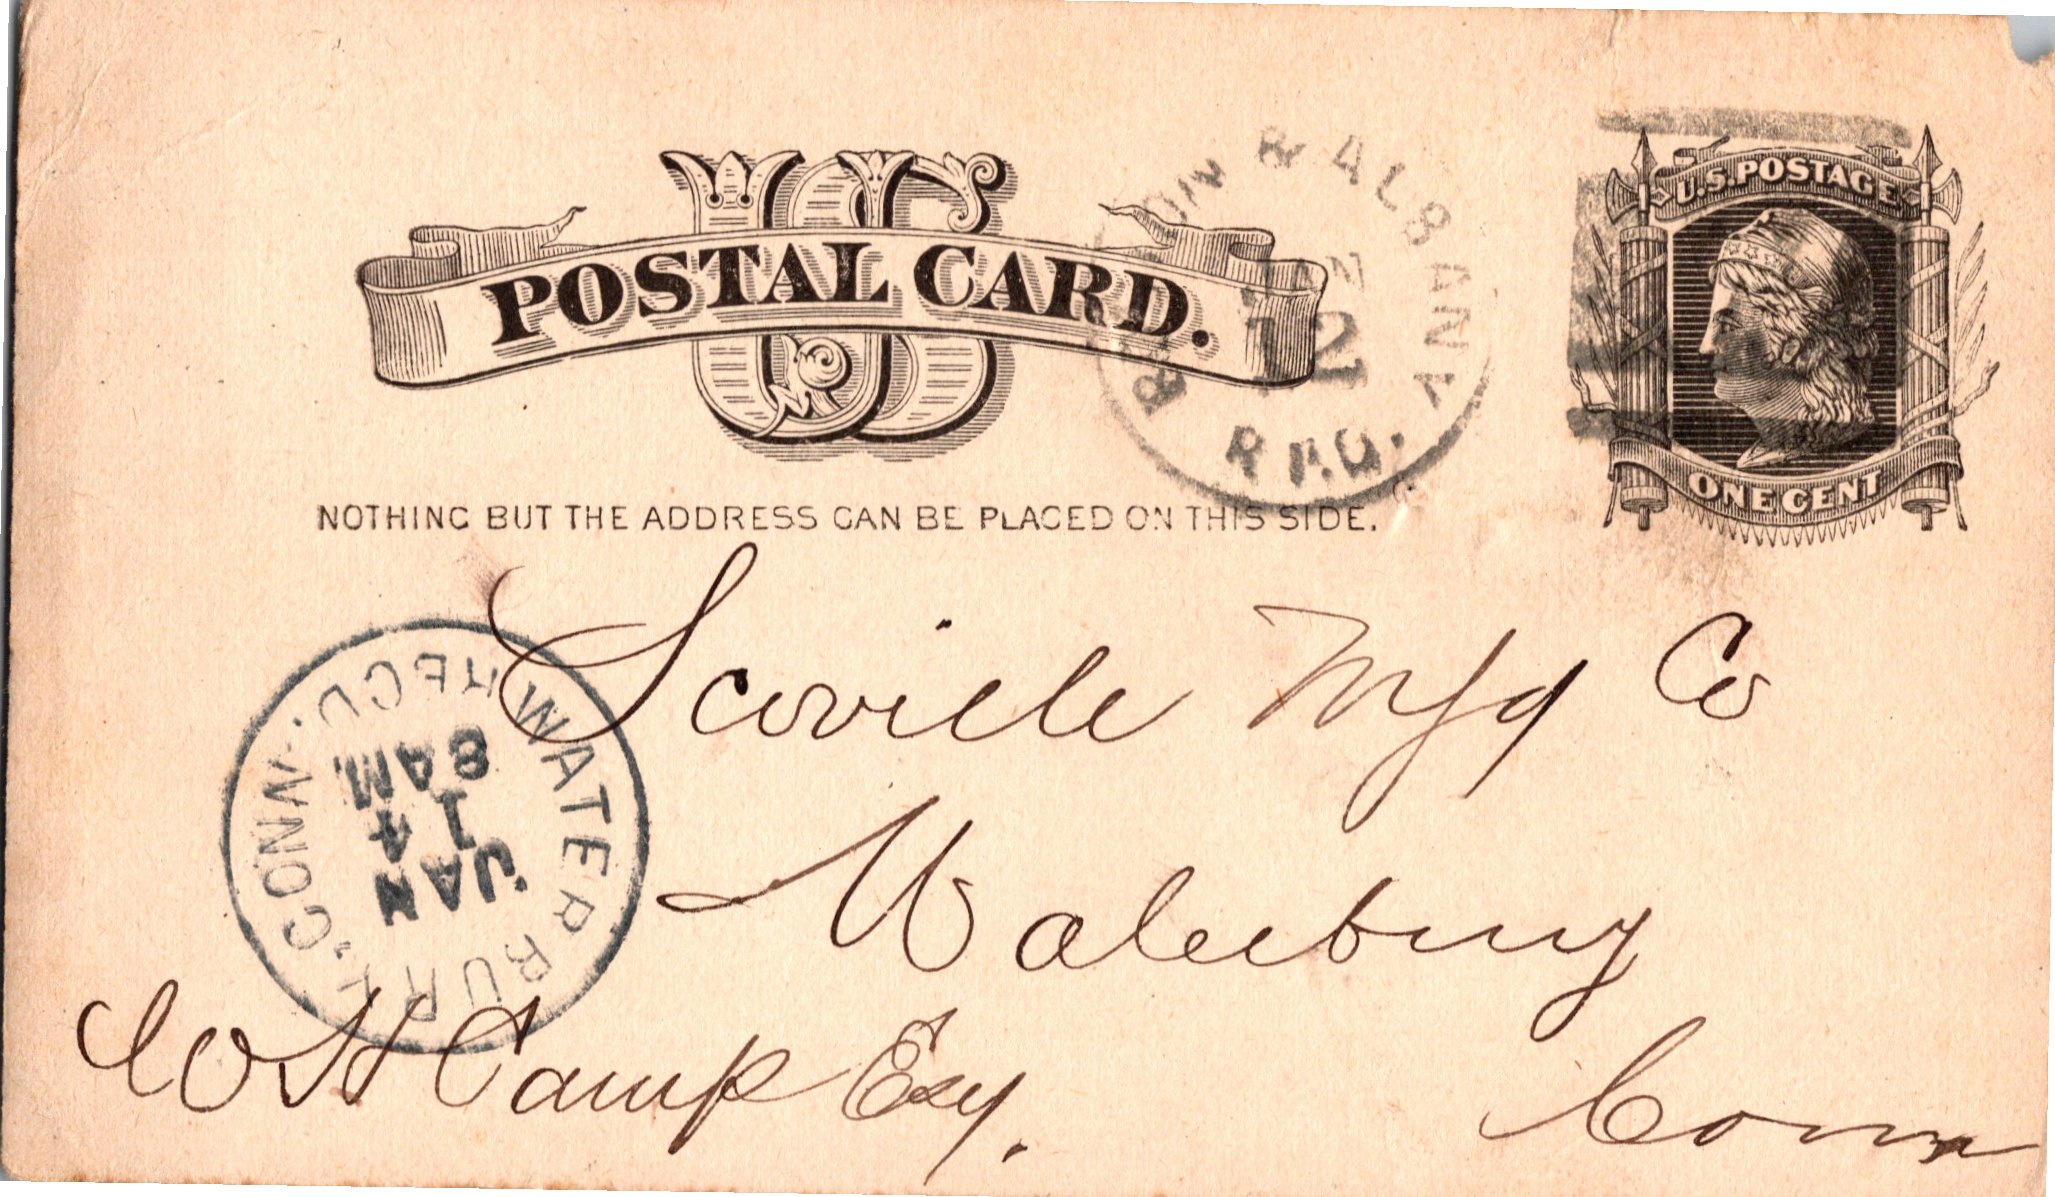 US
POSTAL CARD.
NOTHING BUT THE ADDRESS CAN BE PLACED ON THIS SIDE.
& ALBANY
JAN
12
R.P.O.
U.S. POSTAGE
ONE CENT
Scoville Mfg Co
Waterbury
Conn
W H Camp Esq.
WATERBURY. CONN.
REC'D.
JAN
14
8 AM